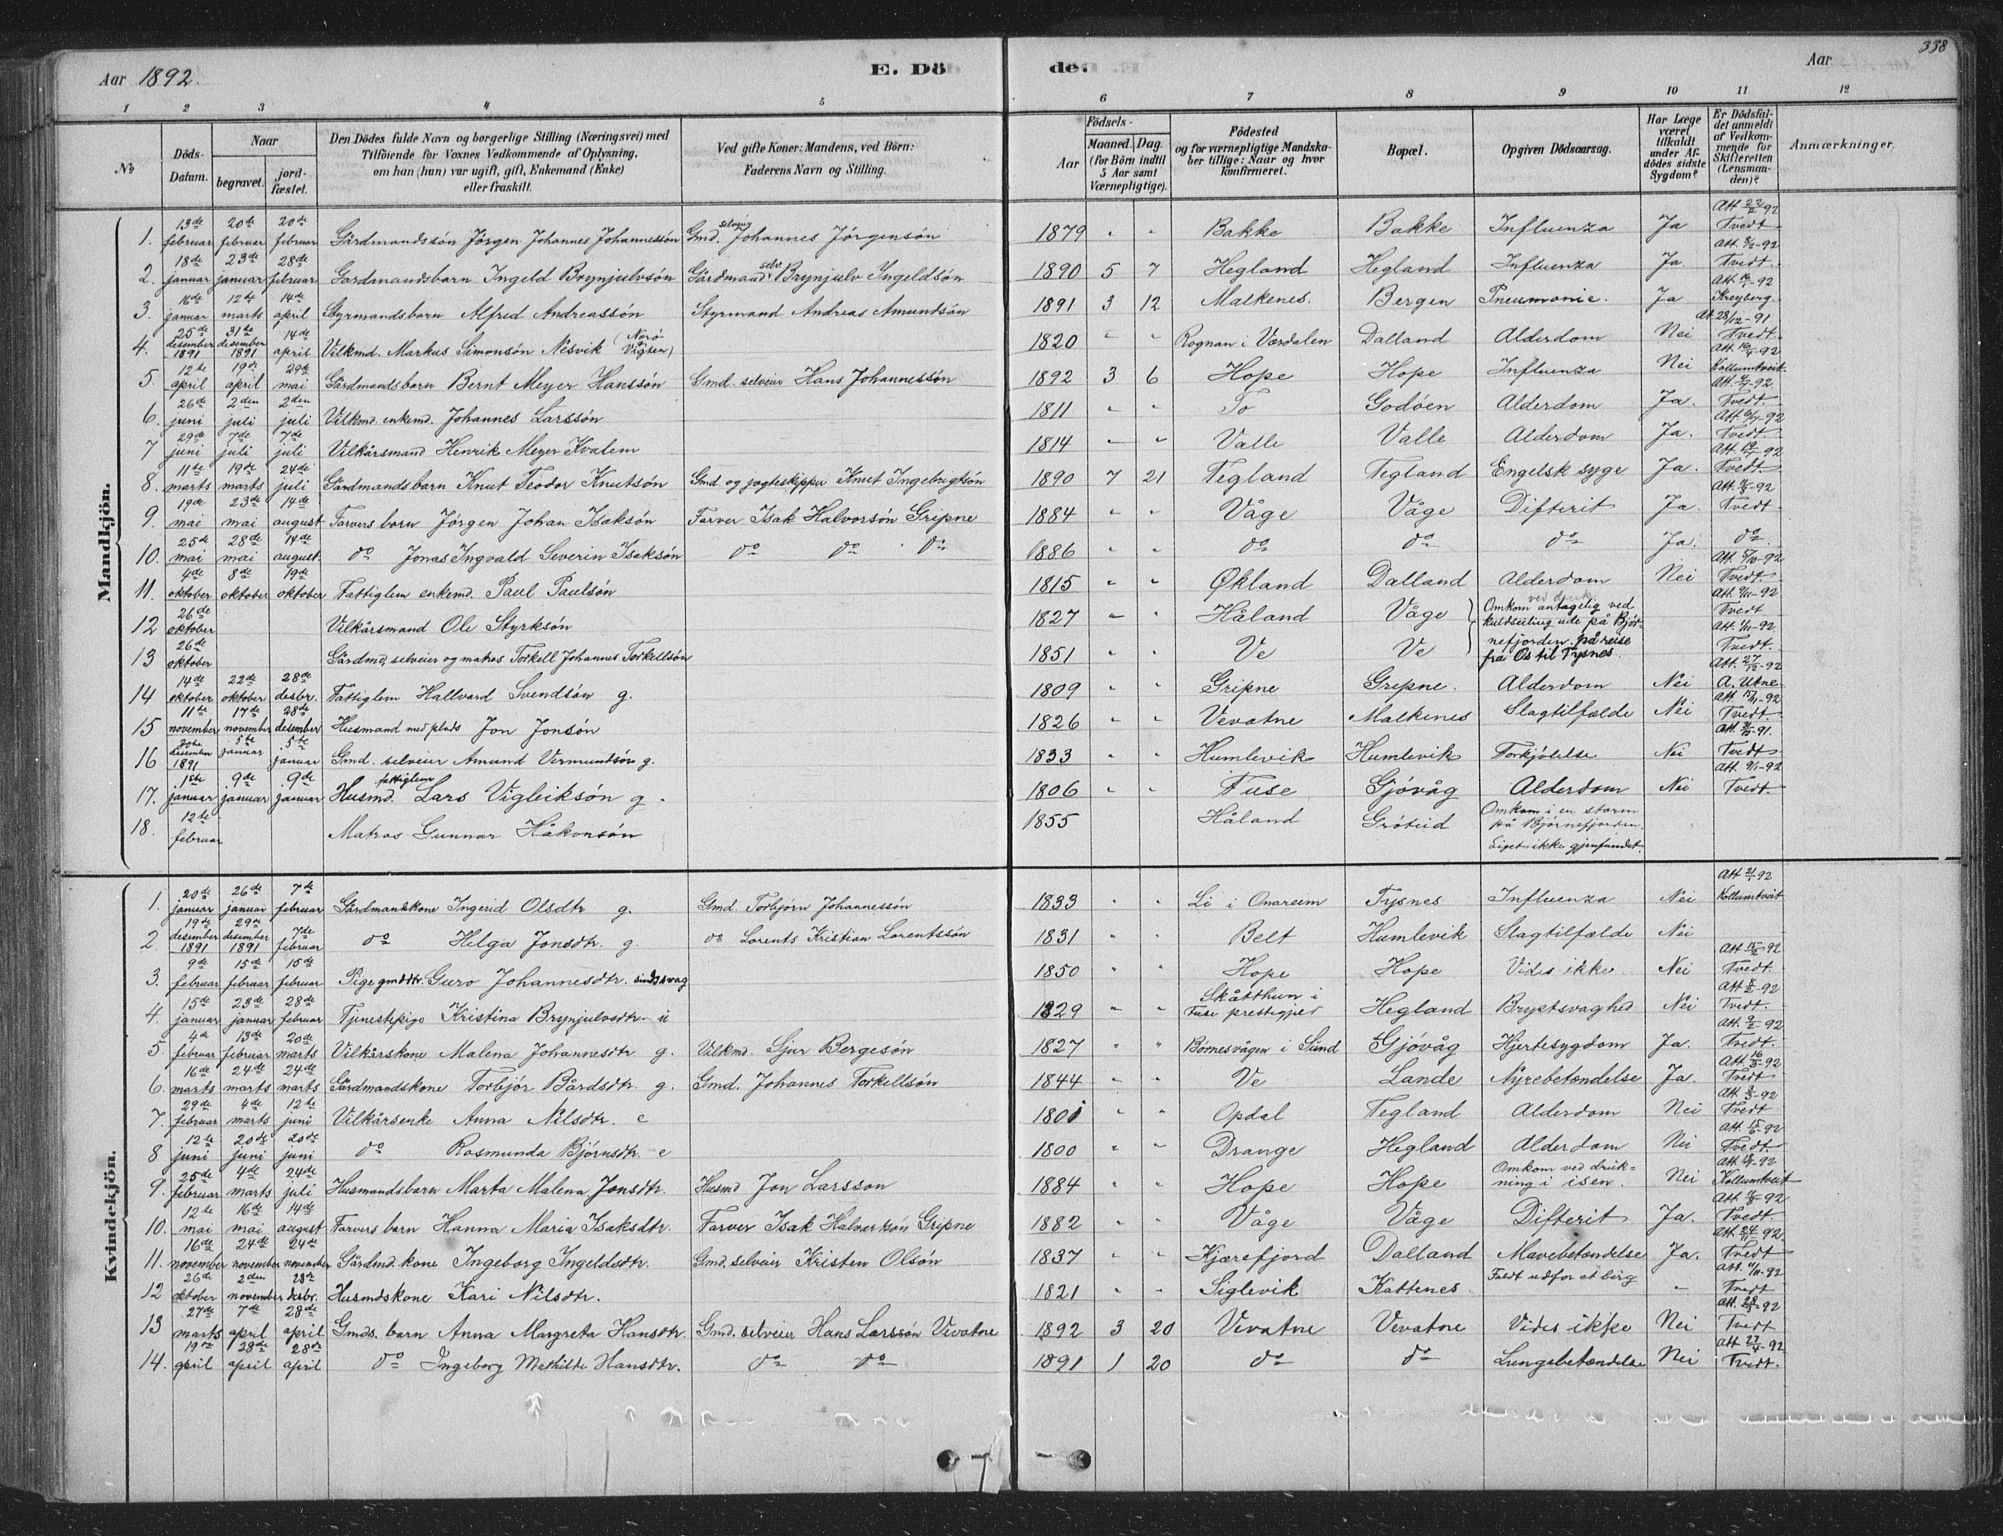 338
Aar 1892. E. Döde. Aar
1 2 3 4 5 6 7 8 9 10 11 12
No
Döds-Datum.
Naar
begravet.
jordfæstet.
Den Dödes fulde Navn og borgerlige Stilling (Næringsvei) med
Tilföiende for Voxnes Vedkommende af Oplysning,
om han (hun) var ugift, gift, Enkemand (Enke)
eller fraskilt.
Ved gifte Koner: Mandens, ved Börn:
Faderens Navn og Stilling.
Födsels-
Aar
Maaned. Dag.
(for Börn indtil
5 Aar samt
Værnepligtige).
Födested
og for værnepligtige Mandskaber tillige: Naar og hvor
konfirmeret.
Bopæl.
Opgiven Dödsaarsag.
Har Læge
været
tilkaldt
under Afdödes sidste
Sygdom?
Er Dödsfaldet anmeldt
af Vedkommende for
Skifteretten
(Lensmanden)?
Anmærkninger.
Mandkjön.
1. 13de februar 20de februar 20de februar Gårdmandssøn Jørgen Johannes Johannessøn Gmd. selveier Johannes Jørgensøn 1879 " " Bakke Bakke Influenza Ja Att 22/2 92 Tvedt.
2. 18de januar 23de januar 28de februar Gårdmandsbarn Ingeld Brynjulvsøn Gårdmand selv. Brynjulv Ingeldsøn 1890 5 7 Hegland Hegland Influenza Ja. Tvedt.
3. 16de januar 12te marts 14de april Styrmandsbarn Alfred Andreassøn Styrmand Andreas Amundsøn 1891 3 12 Malkenes. Bergen Pneumonie. Ja Kreyberg.
4. 25de desember 1891 31te desember 1891 14de april Vilkmd. Markus Simonsøn Nesvik (Nørø Vigten) 1820 " " Rognan i Værdalen Dalland Alderdom Nei Att 28/12-91 Tvedt.
5. 12te april 19de april 29de mai Gårdmandsbarn Bernt Meyer Hanssøn Gmd. selveier Hans Johannessøn 1892 3 6 Hope Hope Influenza Nei Kollumtveit
6. 26de juni 2den juli 2den juli Vilkmd enkemd. Johannes Larssøn 1811 " " To Godøen Alderdom Ja. Tvedt.
7 29de juni 7de juli 7de juli Vilkårsmand Henrik Meyer Kvalem 1814 " " Valle Valle Alderdom Ja. Tvedt.
8. 11te marts 19de marts 24de juli Gårdmandsbarn Knut Teodor Knutsøn Gmd og jagteskipper Knut Ingebrigtsøn 1890 7 21 Tegland Tegland Engelsk syge Ja. Tvedt
9. 19de mai 23de mai 14de august Farvers barn Jørgen Johan Isaksøn Farver Isak Halvorsøn Gripne 1884 " " Våge Våge Difterit Ja. Tvedt
10. 25de mai 28de mai 14de august do Jonas Ingvald Severin Isaksøn do do do 1886 " " do do do Ja. do.
11. 4de oktober 8de oktober 19de oktober Fattiglem enkemd. Paul Paulsøn 1815 " " Økland Dalland Alderdom Nei Tvedt
12 26de oktober Vilkårsmand Ole Styrksøn 1827 " " Håland Våge Omkom antagelig ved kuldseiling ude på Bjørnefjorden på reise fra Os til Tysnes. Tvedt
13 26de oktober Gårdmd. selveier og matros Torkell Johannes Torkellsøn 1851 " " Ve Ve Tvedt.
14 14de oktober 22de oktober 28de desbr. Fattiglem Hallvard Svendsøn g. 1809 " " Gripne Gripne. Alderdom Nei Att. 27/12-92 A. Utne.
15 11te november 17de november 28de desember Husmand med plads Jon Jonsøn 1826 " " Vevatne Malkenes Slagtilfælde Nei Tvedt.
16 desember 1891 5te januar 5te januar Gmd. selveier Amund Vermundsøn g. 1833 " " Humlevik Humlevik Forkjølelse Nei Tvedt
17. 1ste januar 9de januar 9de januar Husmd. fattiglem Lars Vigleiksøn g. 1806 " " Fuse Gjøvåg Alderdom Nei Tvedt.
18. 12te februar Matros Gunnar Håkonsøn 1855 Håland Grøteid Omkom i en storm på Bjørnefjorden. Liget ikke gjenfundet.
Kvindekjön.
1. 20de januar 26de januar 7de februar Gårdmandskone Ingerid Olsdtr g. Gmd. Torbjørn Johannessøn 1833 " " Li i Onarem Tysnes Influenza Nei Kollumtveit
2. 19de desember 1891 29de desember 1891 7de februar do Helga Jonsdtr. g. do Lorents Kristian Lorentssøn 1831 " " Belt Humlevik Slagtilfælde Nei
3. 9de februar 15de februar 15de februar Pige gmdtr. Guro Johannesdtr. sindssvag 1850 " " Hope Hope Vides ikke. Nei Tvedt.
4. 15de januar 23de januar 28de februar Tjenestepige Kristina Brynjulvsdtr. u 1829 " " Skåtthun i Fuse prestegjeld Hegland Brystsvaghed Nei Tvedt.
5. 4de februar 13de februar 20de marts Vilkårskone Malena Johannesdtr g. Vilkmd. Sjur Bergesøn 1827 " " Børnesvågen i Sund Gjøvåg Hjertesygdom Ja. Tvedt.
6. 16de marts 24de marts 24de marts Gårdmandskone Torbjør Bårdsdtr. g. Gmd. Johannes Torkellsøn 1844 " " Ve Lande Nyrebetændelse Ja. Tvedt
7. 29de februar 4de marts 12te juni Vilkårsenke Anna Nilsdtr. e 1801 " " Opdal Tegland Alderdom Nei Tvedt
8 12te juni 20de juni 20de juni do Rosmunda Bjørnsdtr. e 1800 " " Drange Hegland Alderdom Nei Tvedt.
9. 25de februar 4de marts 24de juli Husmandsbarn Marta Malena Jonsdtr. Husmd Jon Larsson 1884 " " Hope Hope Omkom ved drukning i isen. Nei Kollumtveit
10. 12te mai 16de mai 14de august Farvers barn Hanna Maria Isaksdtr. Farver Isak Halvorsøn Gripne 1882 " " Våge Våge Difterit Ja. Tvedt.
11. 16de november 24de november 24de november Gårdmd. kone Ingeborg Ingeldsdtr. Gmd. selveier Kristen Olsøn 1837 " " Kjærefjord Dalland Mavebetændelse Ja. Tvedt
12 26de oktober 2den november 28de desbr. Husmdskone Kari Nilsdtr. 1821 " " Siglevik Kattenes Faldt udfor et berg – Tvedt
13 27de marts 7de april 28de april Gmds. barn Anna Margreta Hansdtr. Gmd. selveier Hans Larssøn Vevatne 1892 3 20 Vevatne Vevatne Vides ikke Nei Tvedt.
14. 19de april 28de april 28de april do Ingeborg Mathilde Hansdtr. do do 1891 1 20 do do Lungebetændelse Nei Tvedt.